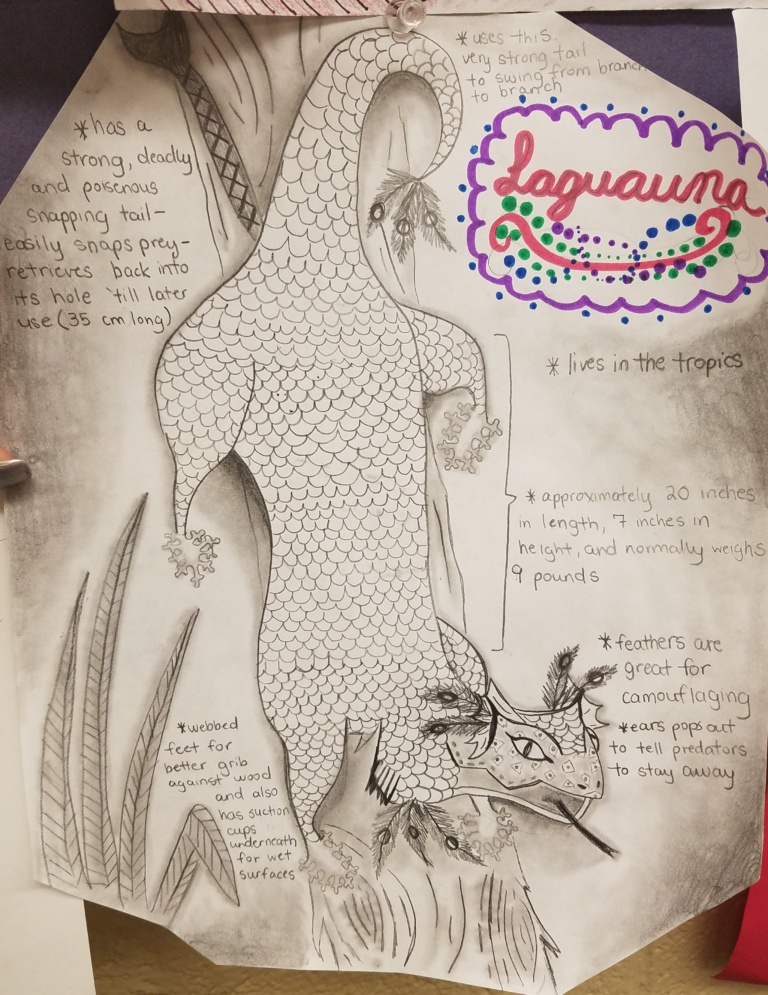 *uses this
very strong tail
to swing from branch
to branch
*has a
strong, deadly
and poisenous
snapping tail-
easily snaps prey-
retrieves back into
its hole 'till later
use (35 cm long)
Laguauna
* lives in the tropics
* approximately 20 inches
in length, 7 inches in
height, and normally weighs
9 pounds
*feathers are
great for
camouflaging
*ears pops out
to tell predators
to stay away
*webbed
feet for
better grib
against wood
and also
has suction
cups
underneath
for wet
surfaces